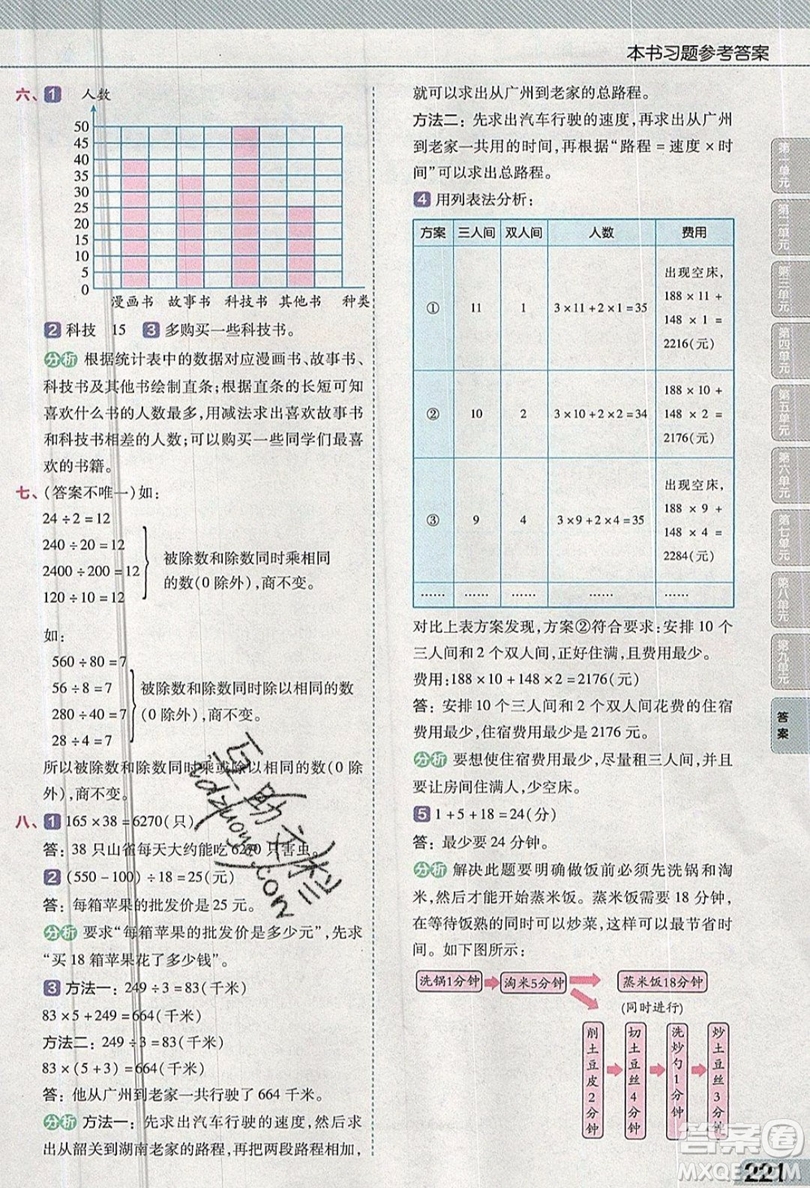 本书习题参考答案
六、1 人数
50
45
40
35
30
25
20
15
10
5
0
漫画书 故事书 科技书 其他书 种类
2 科技 15 3 多购买一些科技书。
分析 根据统计表中的数据对应漫画书、故事书、
科技书及其他书绘制直条；根据直条的长短可知
喜欢什么书的人数最多，用减法求出喜欢故事书
和科技书相差的人数；可以购买一些同学们最喜
欢的书籍。
七、(答案不唯一)如：
24÷2=12
240÷20=12
2400÷200=12
120÷10=12
被除数和除数同时乘相同
的数(0除外)，商不变。
如：
560÷80=7
56÷8=7
280÷40=7
28÷4=7
被除数和除数同时除以相同的数
(0除外)，商不变。
所以被除数和除数同时乘或除以相同的数(0除
外)，商不变。
八、1 165×38=6270(只)
答：38只山雀每天大约能吃6270只害虫。
2 (550-100)÷18=25(元)
答：每箱苹果的批发价是25元。
分析 要求“每箱苹果的批发价是多少元”，先求
“买18箱苹果花了多少钱”。
3 方法一：249÷3=83(千米)
83×5+249=664(千米)
方法二：249÷3=83(千米)
83×(5+3)=664(千米)
答：他从广州到老家一共行驶了664千米。
分析 方法一：先求出汽车行驶的速度，再求
出从韶关到湖南老家的路程，再把两段路程相加，
就可以求出从广州到老家的总路程。
方法二：先求出汽车行驶的速度，再求出从广州
到老家一共用的时间，再根据“路程=速度×时
间”可以求出总路程。
4 用列表法分析：
方案 三人间 双人间 人数 费用
① 11 1 3×11+2×1=35 出现空床，
188×11+
148×1=
2216(元)
② 10 2 3×10+2×2=34 188×10+
148×2=
2176(元)
③ 9 4 3×9+2×4=35 出现空床，
188×9+
148×4=
2284(元)
…… …… …… …… ……
对比上表方案发现，方案②符合要求：安排10个
三人间和2个双人间，正好住满。
费用：188×10+148×2=2176(元)
答：安排10个三人间和2个双人间花费的住宿
费用最少，住宿费用最少是2176元。
分析 要想使住宿费用最少，尽量租三人间，并
要让房间住满，少空床。
5 1+5+18=24(分)
答：最少要24分钟。
分析 解决此题要明确做饭前必须先洗锅和淘
米，然后才能开始蒸米饭。蒸米饭需要18分钟，
在等待饭熟的同时可以炒菜，这样可以最节省时
间。如下图所示：
洗锅1分钟 淘米5分钟 蒸米饭18分钟
(同时进行)
削土豆皮2分钟 切土豆丝4分钟 洗炒勺1分钟 炒土豆丝3分钟
第一单元
第二单元
第三单元
第四单元
第五单元
第六单元
第七单元
第八单元
第九单元
答案
答案圈
MXQE.COM
221